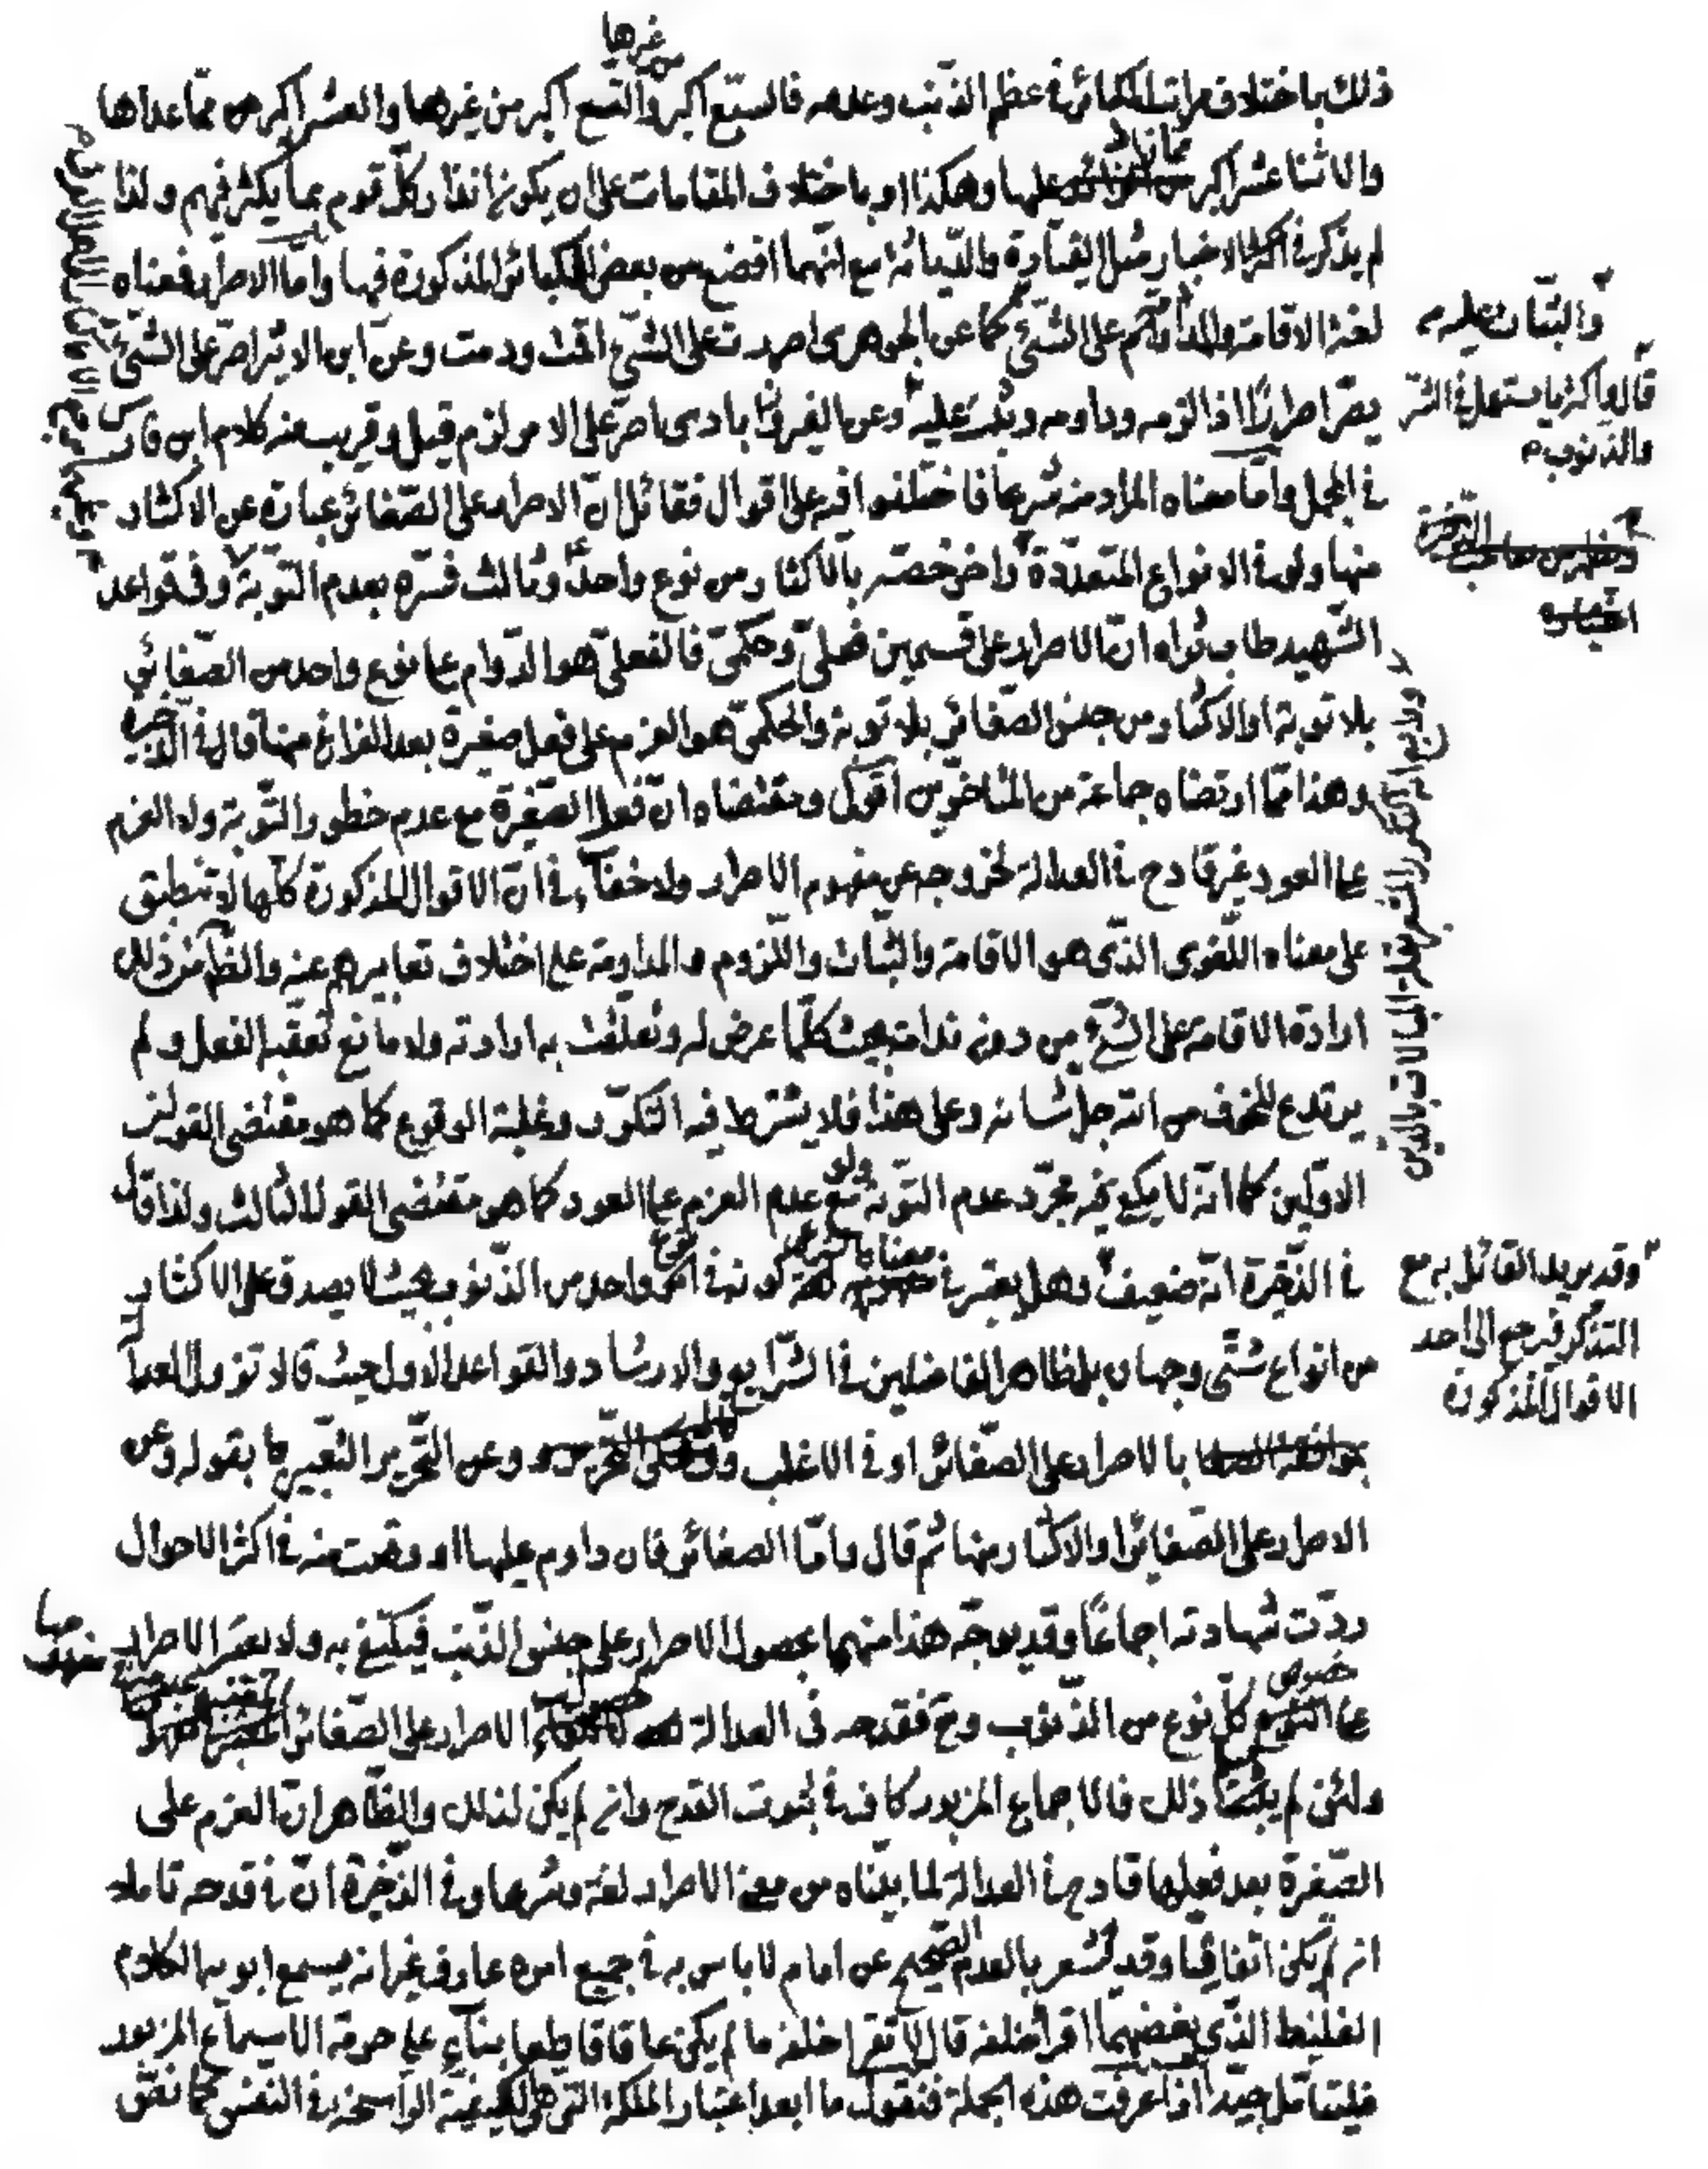 من غيرها
ذلك باختلاف مراتب الكبائر في عظم الذنب وعدمه فالسبع اكبر والتسع اكبر من غيرها والعشر اكبر من مما عداها
والاثنا عشر اكبر مما زاد عليها وهكذا او باختلاف المقامات على ان يكون انذار كل قوم بما يكثر فيهم ولذا
لم يذكر في اكثر الاخبار مثل القيادة والدياثة مع انهما افضع من بعض الكبائر المذكورة فيها واما الاصرار فمعناه
لغة الاقامة والمداومة على الشئ كما عن الجوهري اصررت على الشئ اقمت ودمت وعن ابن الاثير اصر على الشئ
والثبات عليه
يصر اصرارا اذا لزمه وداومه وثبت عليه وعن الفيروزابادى اصر على الامر لزم قيل وقريب منه كلام ابن فارس
قال واكثر ما يستعمل في الشر
والذنوب
في المجمل واما معناه المراد منه شرعا فاختلفوا فيه على اقوال فقائل ان الاصرار على الصغائر عبارة عن الاكثار
منها ولو في الانواع المتعددة واخر خصه بالاكثار من نوع واحد وثالث فسره بعدم التوبة وفي قواعد
الشهيد طاب ثراه ان الاصرار على قسمين فعلى وحكمى فالفعلى هو الدوام على نوع واحد من الصغائر
بلا توبة او الاكثار من جنس الصغائر بلا توبة والحكمى هو العزم على فعل صغيرة بعد الفراغ منها قال في الذخيرة
وهذا مما ارتضاه جماعة من المتاخرين اقول ومقتضاه ان فعل الصغيرة مع عدم خطور التوبة ولا العزم
على العود غير قادح في العدالة لخروجه عن مفهوم الاصرار ولا خفاء في ان الاقوال المذكورة كلها لا تنطبق
على معناه اللغوى الذى هو الاقامة والثبات واللزوم والمداومة على اختلاف تعابيرهم عنه والظاهر من ذلك
ارادة الاقامة على الشئ من دون ندامة بحيث كلما عرض له وتعلقت به ارادته ولا مانع تعقبه الفعل ولم
يرتدع للخوف من الله جل شانه وعلى هذا فلا يشترط فيه التكرر وغلبة الوقوع كما هو مقتضى القولين
الاولين كما انه لا يكفى فيه مجرد عدم التوبة ولو مع عدم العزم على العود كما هو مقتضى القول الثالث ولذا قال
في الذخيرة انه ضعيف وهل يعتبر في معناه كونه في نوع واحد من الذنوب بحيث لا يصدق على الاكثار
وقد يريد القائل به مع
التذكر فيرجع الى احد
الاقوال المذكورة
من انواع شتى وجهان بل ظاهر الفاضلين في الشرايع والارشاد والقواعد الاول حيث قالا تزول العدالة
بالاصرار على الصغائر او في الاغلب وعن التحرير التعبير بقوله وعن
الاصرار على الصغائر او الاكثار منها ثم قال واما الصغائر فان داوم عليها او وقعت منه في اكثر الاحوال
ردت شهادته اجماعا وقد يوجه هذا منهما بحصول الاصرار على جنس الذنب فيكتفى به ولا يعتبر الاصرار
على خصوص كل نوع من الذنوب وح فقدحه في العدالة الاصرار على الصغائر
ولئن لم يثبت ذلك فالاجماع المزبور كاف في ثبوت القدح وان لم يكن لذلك والظاهر ان العزم على
الصغيرة بعد فعلها قادح في العدالة لما بيناه من معنى الاصرار لغة وشرعا وفي الذخيرة ان في قدحه تاملا
ان لم يكن اتفاقيا وقد يشعر بالعدم الصحيح عن امام لا باس به في جميع امره عارف غير انه يسمع ابويه الكلام
الغليظ الذي يغضبهما اقرأ خلفه قال لا تقرأ خلفه ما لم يكن عاقا قاطعا بناء على حرمة الاسماع المزبور
فليتامل جيدا اذا عرفت هذه الجملة فنقول ما ابعد اعتبار الملكة التي هي الكيفية الراسخة في النفس كما نقل